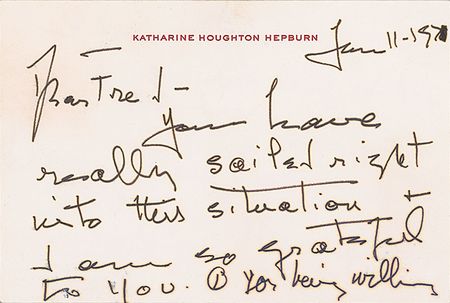 KATHARINE HOUGHTON HEPBURN
Jan 11-1971
Dear Fred -
You have
really sailed right
into this situation +
I am so grateful
to you. ① You being willing